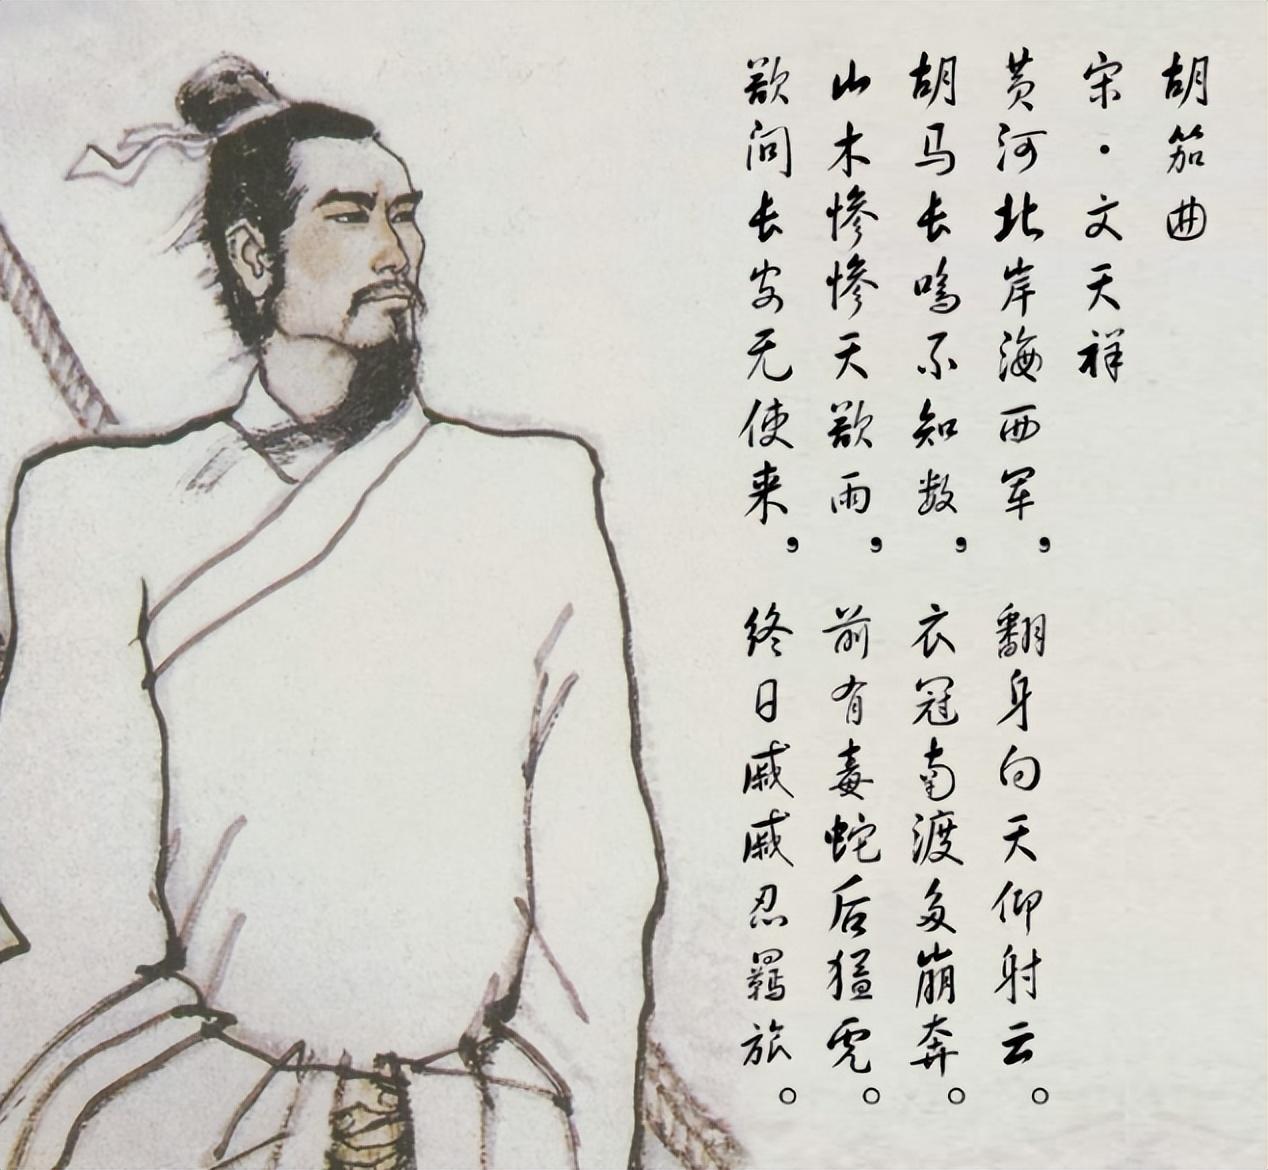 胡笳曲
宋·文天祥
黄河北岸海西军，翻身向天仰射云。
胡马长鸣不知数，衣冠南渡多崩奔。
山木惨惨天欲雨，前有毒蛇后猛虎。
欲问长安无使来，终日戚戚忍羁旅。